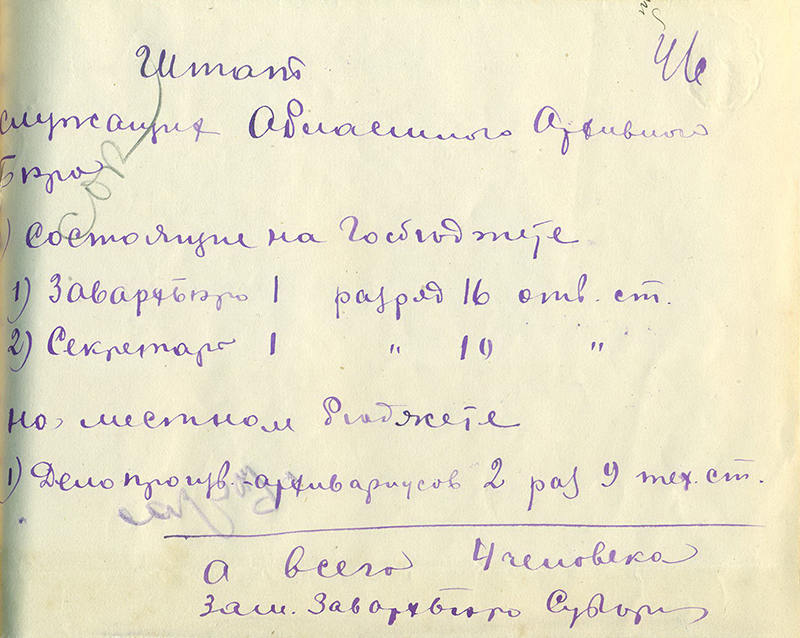 46
Штат
служащих Областного Архивного
Бюро
состоящие на Госбюджете
1) Завархбюро 1 разряд 16 отв. ст.
2) Секретарь 1 " 10 "
на местном бюджете
1) Делопроизв.-архивариусов 2 раз 9 тех. ст.
а всего 4 человека
Зам. Завархбюро